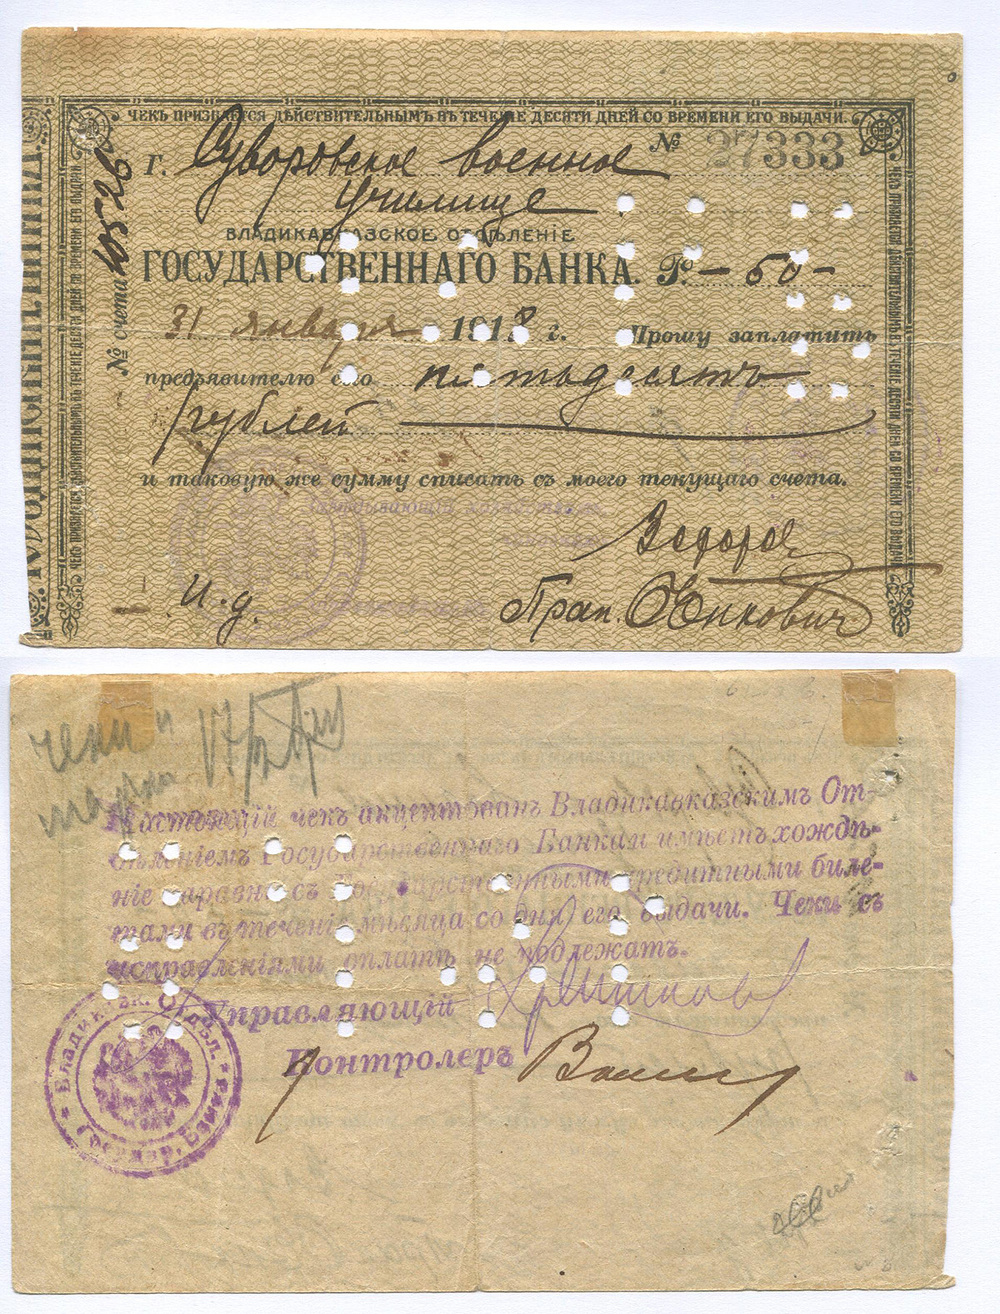 ЧЕКЪ ПРИЗНАЕТСЯ ДѢЙСТВИТЕЛЬНЫМЪ ВЪ ТЕЧЕНІЕ ДЕСЯТИ ДНЕЙ СО ВРЕМЕНИ ЕГО ВЫДАЧИ.
№ 27333
Г. Суворовское военное
училище
№ счета 10526
ВЛАДИКАВКАЗСКОЕ ОТДѢЛЕНІЕ
ГОСУДАРСТВЕННАГО БАНКА. Р. – 50 –
31 января 1918 г. Прошу заплатить
предъявителю сего пятьдесятъ
рублей
и таковую же сумму списать съ моего текущаго счета.
И. д. Прап.
чеки и
марки
Настоящій чекъ акцептованъ Владикавказскимъ От-
дѣленіемъ Государственнаго Банка и имѣетъ хожде-
ніе наравнѣ съ Государственными кредитными биле-
тами въ теченіе мѣсяца со дня его выдачи. Чеки съ
исправленіями оплатѣ не подлежатъ.
Управляющій
Контролеръ
Владикавк. Отдѣл.
Государ. Банка